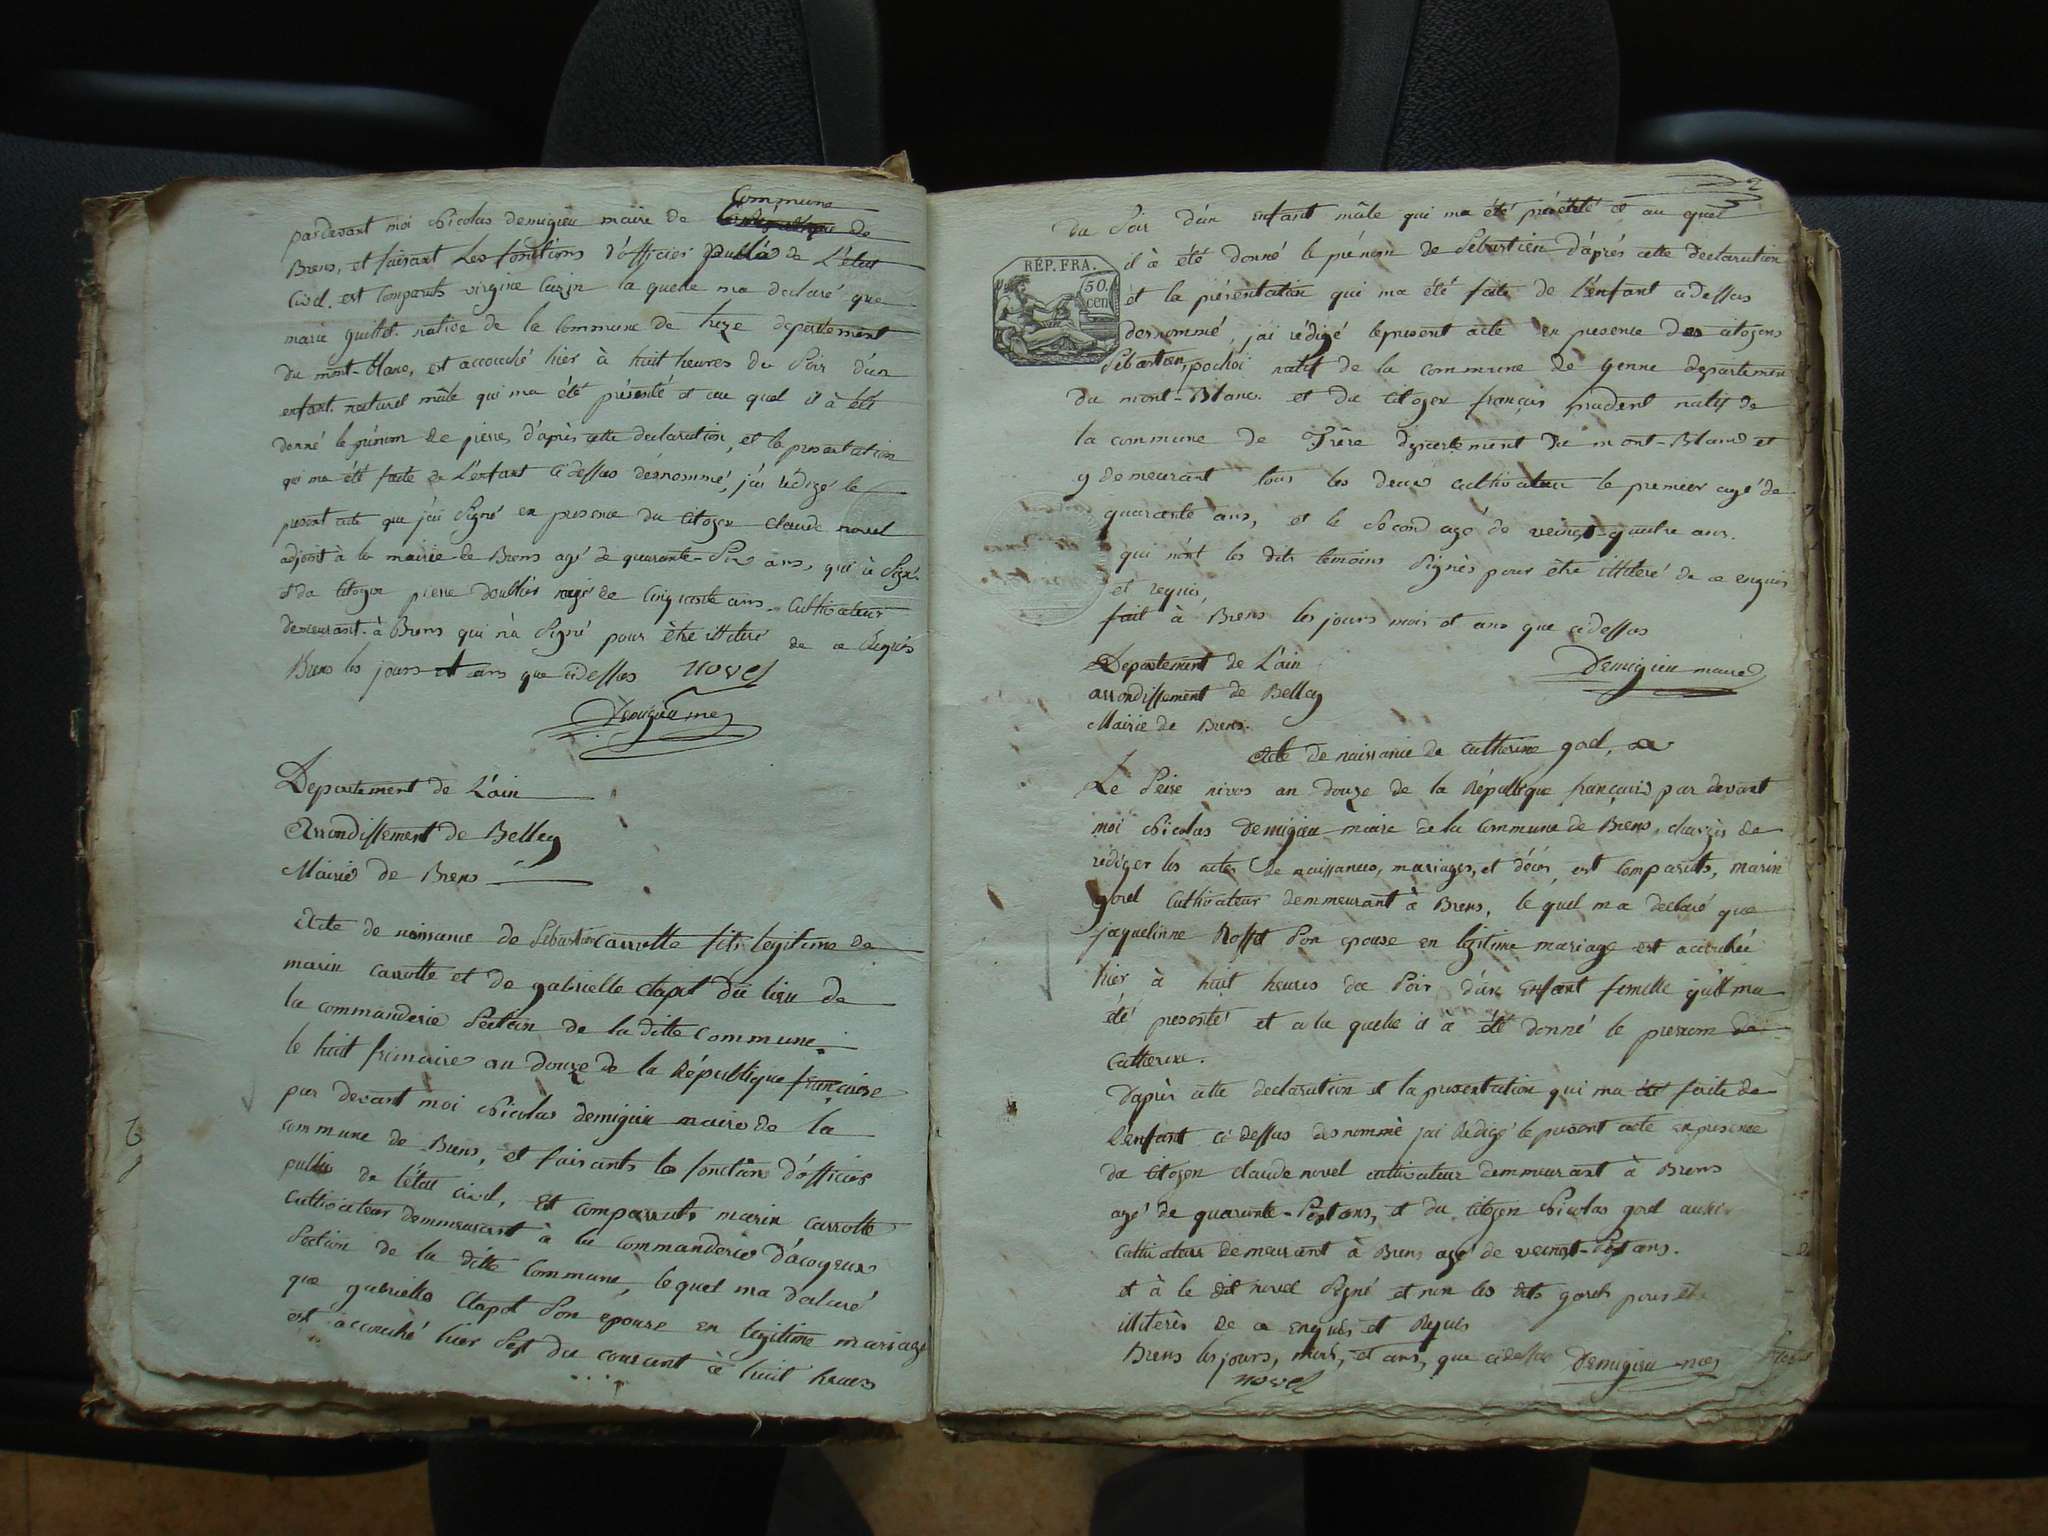 pardevant moi Nicolas demigieu maire de Commune de
Brens, et faisant Les fonctions d'officier publis de L'état
Civil. est Comparuts virgine Cuzin la quelle ma declaré que
marie guillot native de la Commune de departement
du mont-blanc, est accouché hier à huit heures du Soir d'un
enfant naturel mâle qui ma été présenté et au quel il à été
donné le prénom de pierre, d'après cette declaration, et la presentation
qui ma été faite de L'enfant cidessus désnommé, j'ai rédigé le
present acte que j'ai Signé en presence du Citoyen claude novel
adjoint à la mairie de Brens agé de quarante-Six ans, qui à Signé
et du Citoyen pierre doublier agé de Cinquante ans Cultivateur
demeurant à Brens qui n'à Signé pour être illitéré de ce Enquis
Brens les jours et ans que cidessus novel
Demigieu me
Departement de L'ain
Arrondissement de Belley
Mairie de Brens
Acte de naissance de Sébastien carrotte fils legitime de
marin carrotte et de gabrielle clapot du lieu de
la commanderie Section de la ditte commune.
le huit frimaire an douze de la République française
par devant moi Nicolas demigieu maire de la
commune de Brens, et faisants les fonctions d'officier
publis de l'état civil, est comparruts marin carrotte
cultivateur demmeurant à la commanderie d'acoyeux
Section de la ditte Commune, le quel ma declaré
que gabrielle Clapot Son epouse en legitime mariage
est accouché hier Sept du courant à huit heures
du Soir d'un enfant mâle qui ma été présenté et au quel
il à été donné le prénom de Sébastien d'aprés cette declaration
RÉP. FRA.
50 cen
et la présentation qui ma été faite de l'enfant cidessus
desnommé, jai rédigé le present acte en presence des citoyens
Sébastien pochoi natif de la commune de yenne departement
du mont-Blanc. et du citoyen françois prudent natif de
la commune de Trère departement du mont-Blanc et
y demeurant tous les deux cultivateur le premier agé de
quarante ans, et le Second agé de veingt-quatre ans.
qui n'ont les dits temoins Signés pour être illiteré de ce enquis
et requis,
fait à Brens les jours mois et ans que cidessus
Demigieu maire
Departement de L'ain
arrondissement de Belley
Mairie de Brens.
Acte de naissance de catherine gorel,
Le Seize nivos an douze de la République française par devant
moi Nicolas Demigieu maire de la Commune de Brens, chargés de
rédiger les actes de naissances, mariages, et décès, est comparuts, marin
gorel Cultivateur demmeurant à Brens, le quel ma declaré que
jaquelinne Rosset Son epouse en légitime mariage est accouchée
hier à huit heures du Soir d'un Enfant femelle qu'il ma
été presenté et a la quelle il a été donné le prenom de
Catherine.
D'après cette declaration et la presentation qui ma été faite de
L'enfant cidessus desnommé jai Redigé le present acte en presence
du citoyen claude novel cultivateur demmeurant à Brens
agé de quarante-Sept ans, et du citoyen Nicolas gorel aussi
Cultivateur demeurant à Brens agé de veingt-Sept ans.
et à le dit novel Signé et non les dits gorels pour
illiterés de ce enquis et Requis
Brens les jours, mois, et ans, que cidessus Demigieu me
novel